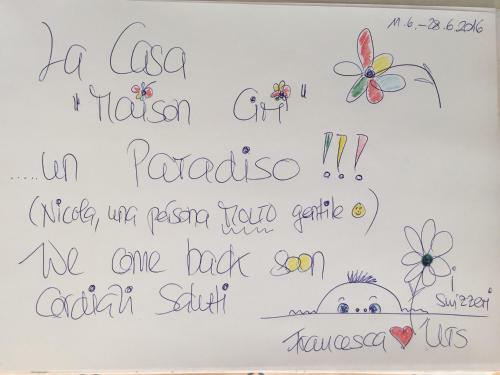 11.6.-28.6.2016
La Casa
"Maison Giri"
.....un Paradiso !!!
(Nicola, una persona MOLTO gentile)
We come back soon
Cordiali Saluti
i
Svizzeri
Francesca Urs